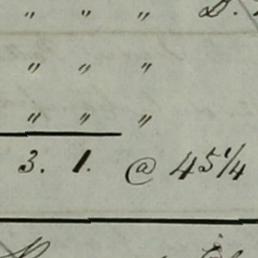 " " " D.
" " "
" " "
3. 1. @ 45 1/4